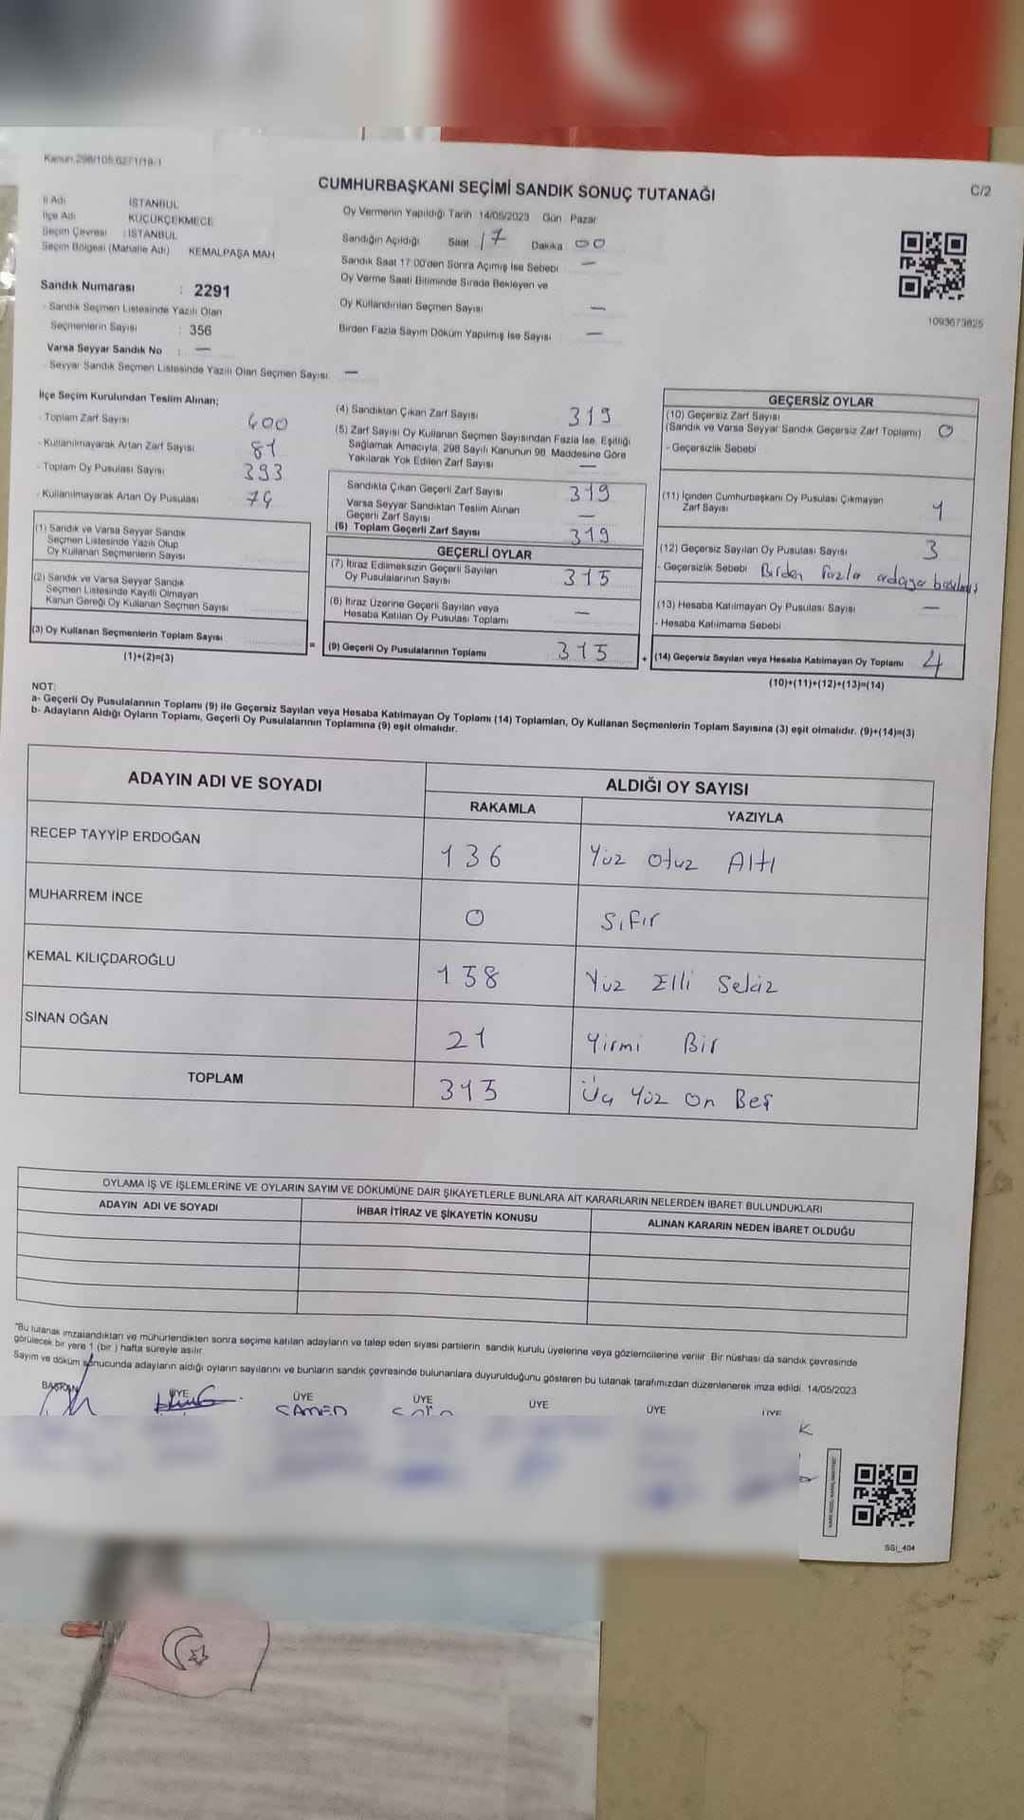 Kanun:298/105;6271/19-1
CUMHURBAŞKANI SEÇİMİ SANDIK SONUÇ TUTANAĞI
C/2
İl Adı : İSTANBUL
İlçe Adı : KÜÇÜKÇEKMECE
Seçim Çevresi : İSTANBUL
Seçim Bölgesi (Mahalle Adı) KEMALPAŞA MAH
Oy Vermenin Yapıldığı Tarih 14/05/2023 Gün Pazar
Sandığın Açıldığı Saat 17 Dakika 00
Sandık Saat 17:00'den Sonra Açılmış İse Sebebi —
Oy Verme Saati Bitiminde Sırada Bekleyen ve
Oy Kullandırılan Seçmen Sayısı —
Birden Fazla Sayım Döküm Yapılmış İse Sayısı —
1093673825
Sandık Numarası : 2291
- Sandık Seçmen Listesinde Yazılı Olan
Seçmenlerin Sayısı : 356
Varsa Seyyar Sandık No : —
- Seyyar Sandık Seçmen Listesinde Yazılı Olan Seçmen Sayısı: —
İlçe Seçim Kurulundan Teslim Alınan;
- Toplam Zarf Sayısı 400
- Kullanılmayarak Artan Zarf Sayısı 81
- Toplam Oy Pusulası Sayısı 393
- Kullanılmayarak Artan Oy Pusulası 74
(1) Sandık ve Varsa Seyyar Sandık
Seçmen Listesinde Yazılı Olup
Oy Kullanan Seçmenlerin Sayısı
(2) Sandık ve Varsa Seyyar Sandık
Seçmen Listesinde Kayıtlı Olmayan
Kanun Gereği Oy Kullanan Seçmen Sayısı
(3) Oy Kullanan Seçmenlerin Toplam Sayısı
(1)+(2)=(3)
(4) Sandıktan Çıkan Zarf Sayısı 319
(5) Zarf Sayısı Oy Kullanan Seçmen Sayısından Fazla İse, Eşitliği
Sağlamak Amacıyla, 298 Sayılı Kanunun 98. Maddesine Göre
Yakılarak Yok Edilen Zarf Sayısı —
Sandıkta Çıkan Geçerli Zarf Sayısı 319
Varsa Seyyar Sandıktan Teslim Alınan
Geçerli Zarf Sayısı —
(6) Toplam Geçerli Zarf Sayısı 319
GEÇERLİ OYLAR
(7) İtiraz Edilmeksizin Geçerli Sayılan
Oy Pusulalarının Sayısı 315
(8) İtiraz Üzerine Geçerli Sayılan veya
Hesaba Katılan Oy Pusulası Toplamı —
= (9) Geçerli Oy Pusulalarının Toplamı 315
GEÇERSİZ OYLAR
(10) Geçersiz Zarf Sayısı
(Sandık ve Varsa Seyyar Sandık Geçersiz Zarf Toplamı) 0
- Geçersizlik Sebebi
(11) İçinden Cumhurbaşkanı Oy Pusulası Çıkmayan
Zarf Sayısı 1
(12) Geçersiz Sayılan Oy Pusulası Sayısı 3
- Geçersizlik Sebebi Birden fazla adaya
(13) Hesaba Katılmayan Oy Pusulası Sayısı —
- Hesaba Katılmama Sebebi
+ (14) Geçersiz Sayılan veya Hesaba Katılmayan Oy Toplamı 4
(10)+(11)+(12)+(13)=(14)
NOT:
a- Geçerli Oy Pusulalarının Toplamı (9) ile Geçersiz Sayılan veya Hesaba Katılmayan Oy Toplamı (14) Toplamları, Oy Kullanan Seçmenlerin Toplam Sayısına (3) eşit olmalıdır. (9)+(14)=(3)
b- Adayların Aldığı Oyların Toplamı, Geçerli Oy Pusulalarının Toplamına (9) eşit olmalıdır.
ADAYIN ADI VE SOYADI
ALDIĞI OY SAYISI
RAKAMLA YAZIYLA
RECEP TAYYİP ERDOĞAN 136 Yüz Otuz Altı
MUHARREM İNCE 0 Sıfır
KEMAL KILIÇDAROĞLU 158 Yüz Elli Sekiz
SİNAN OĞAN 21 Yirmi Bir
TOPLAM 315 Üç Yüz On Beş
OYLAMA İŞ VE İŞLEMLERİNE VE OYLARIN SAYIM VE DÖKÜMÜNE DAİR ŞİKAYETLERLE BUNLARA AİT KARARLARIN NELERDEN İBARET BULUNDUKLARI
ADAYIN ADI VE SOYADI
İHBAR İTİRAZ VE ŞİKAYETİN KONUSU
ALINAN KARARIN NEDEN İBARET OLDUĞU
"Bu tutanak imzalandıktan ve mühürlendikten sonra seçime katılan adayların ve talep eden siyasi partilerin sandık kurulu üyelerine veya gözlemcilerine verilir. Bir nüshası da sandık çevresinde
görülecek bir yere 1 (bir ) hafta süreyle asılır.
Sayım ve döküm sonucunda adayların aldığı oyların sayılarını ve bunların sandık çevresinde bulunanlara duyurulduğunu gösteren bu tutanak tarafımızdan düzenlenerek imza edildi. 14/05/2023
BAŞKAN ÜYE ÜYE ÜYE ÜYE ÜYE ÜYE
SAMED
SGI_404